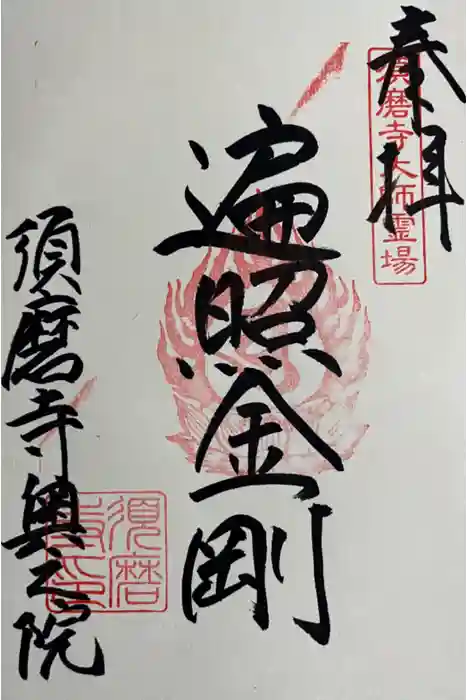 奉拝
須磨寺大師霊場
遍照金剛
須磨寺奥之院
須磨
寺印